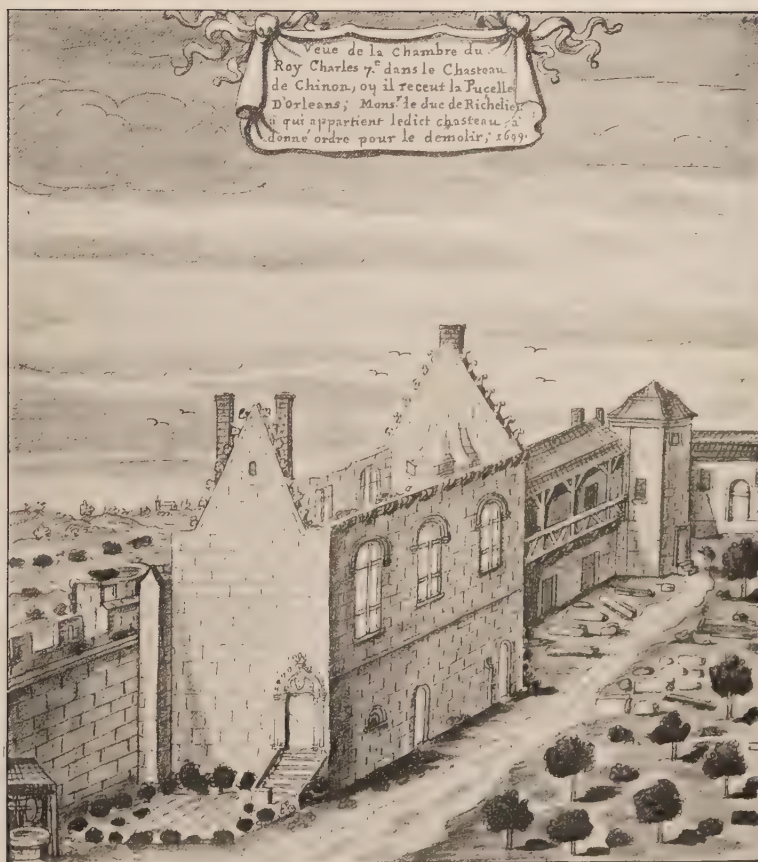 Veüe de la Chambre du
Roy Charles 7.e dans le Chasteau
de Chinon, ou il receut la Pucelle
D'orleans; Mons.r le duc de Richelieu
a qui appartient ledict chasteau, à
donné ordre pour le demolir; 1699.